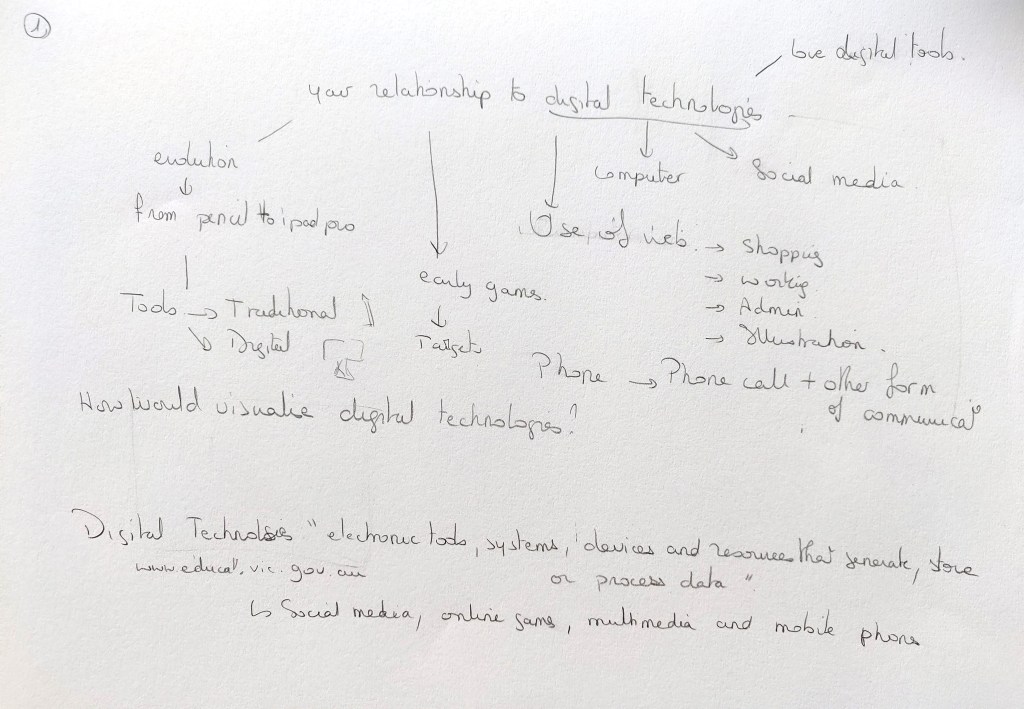 1.
love digital tools.
your relationship to digital technologies
evolution
computer
Social media
from pencil to ipad pro
Use of web → Shopping
→ working
early games.
Tools → Traditional
→ Admin
↘ Digital
→ Illustration.
Phone → Phone call + other form
of communicat°
How would visualise digital technologies?
Digital Technologies "electronic tools, systems, devices and resources that generate, store
www.educat.vic.gov.au
or process data"
↳ Social media, online games, multimedia and mobile phone